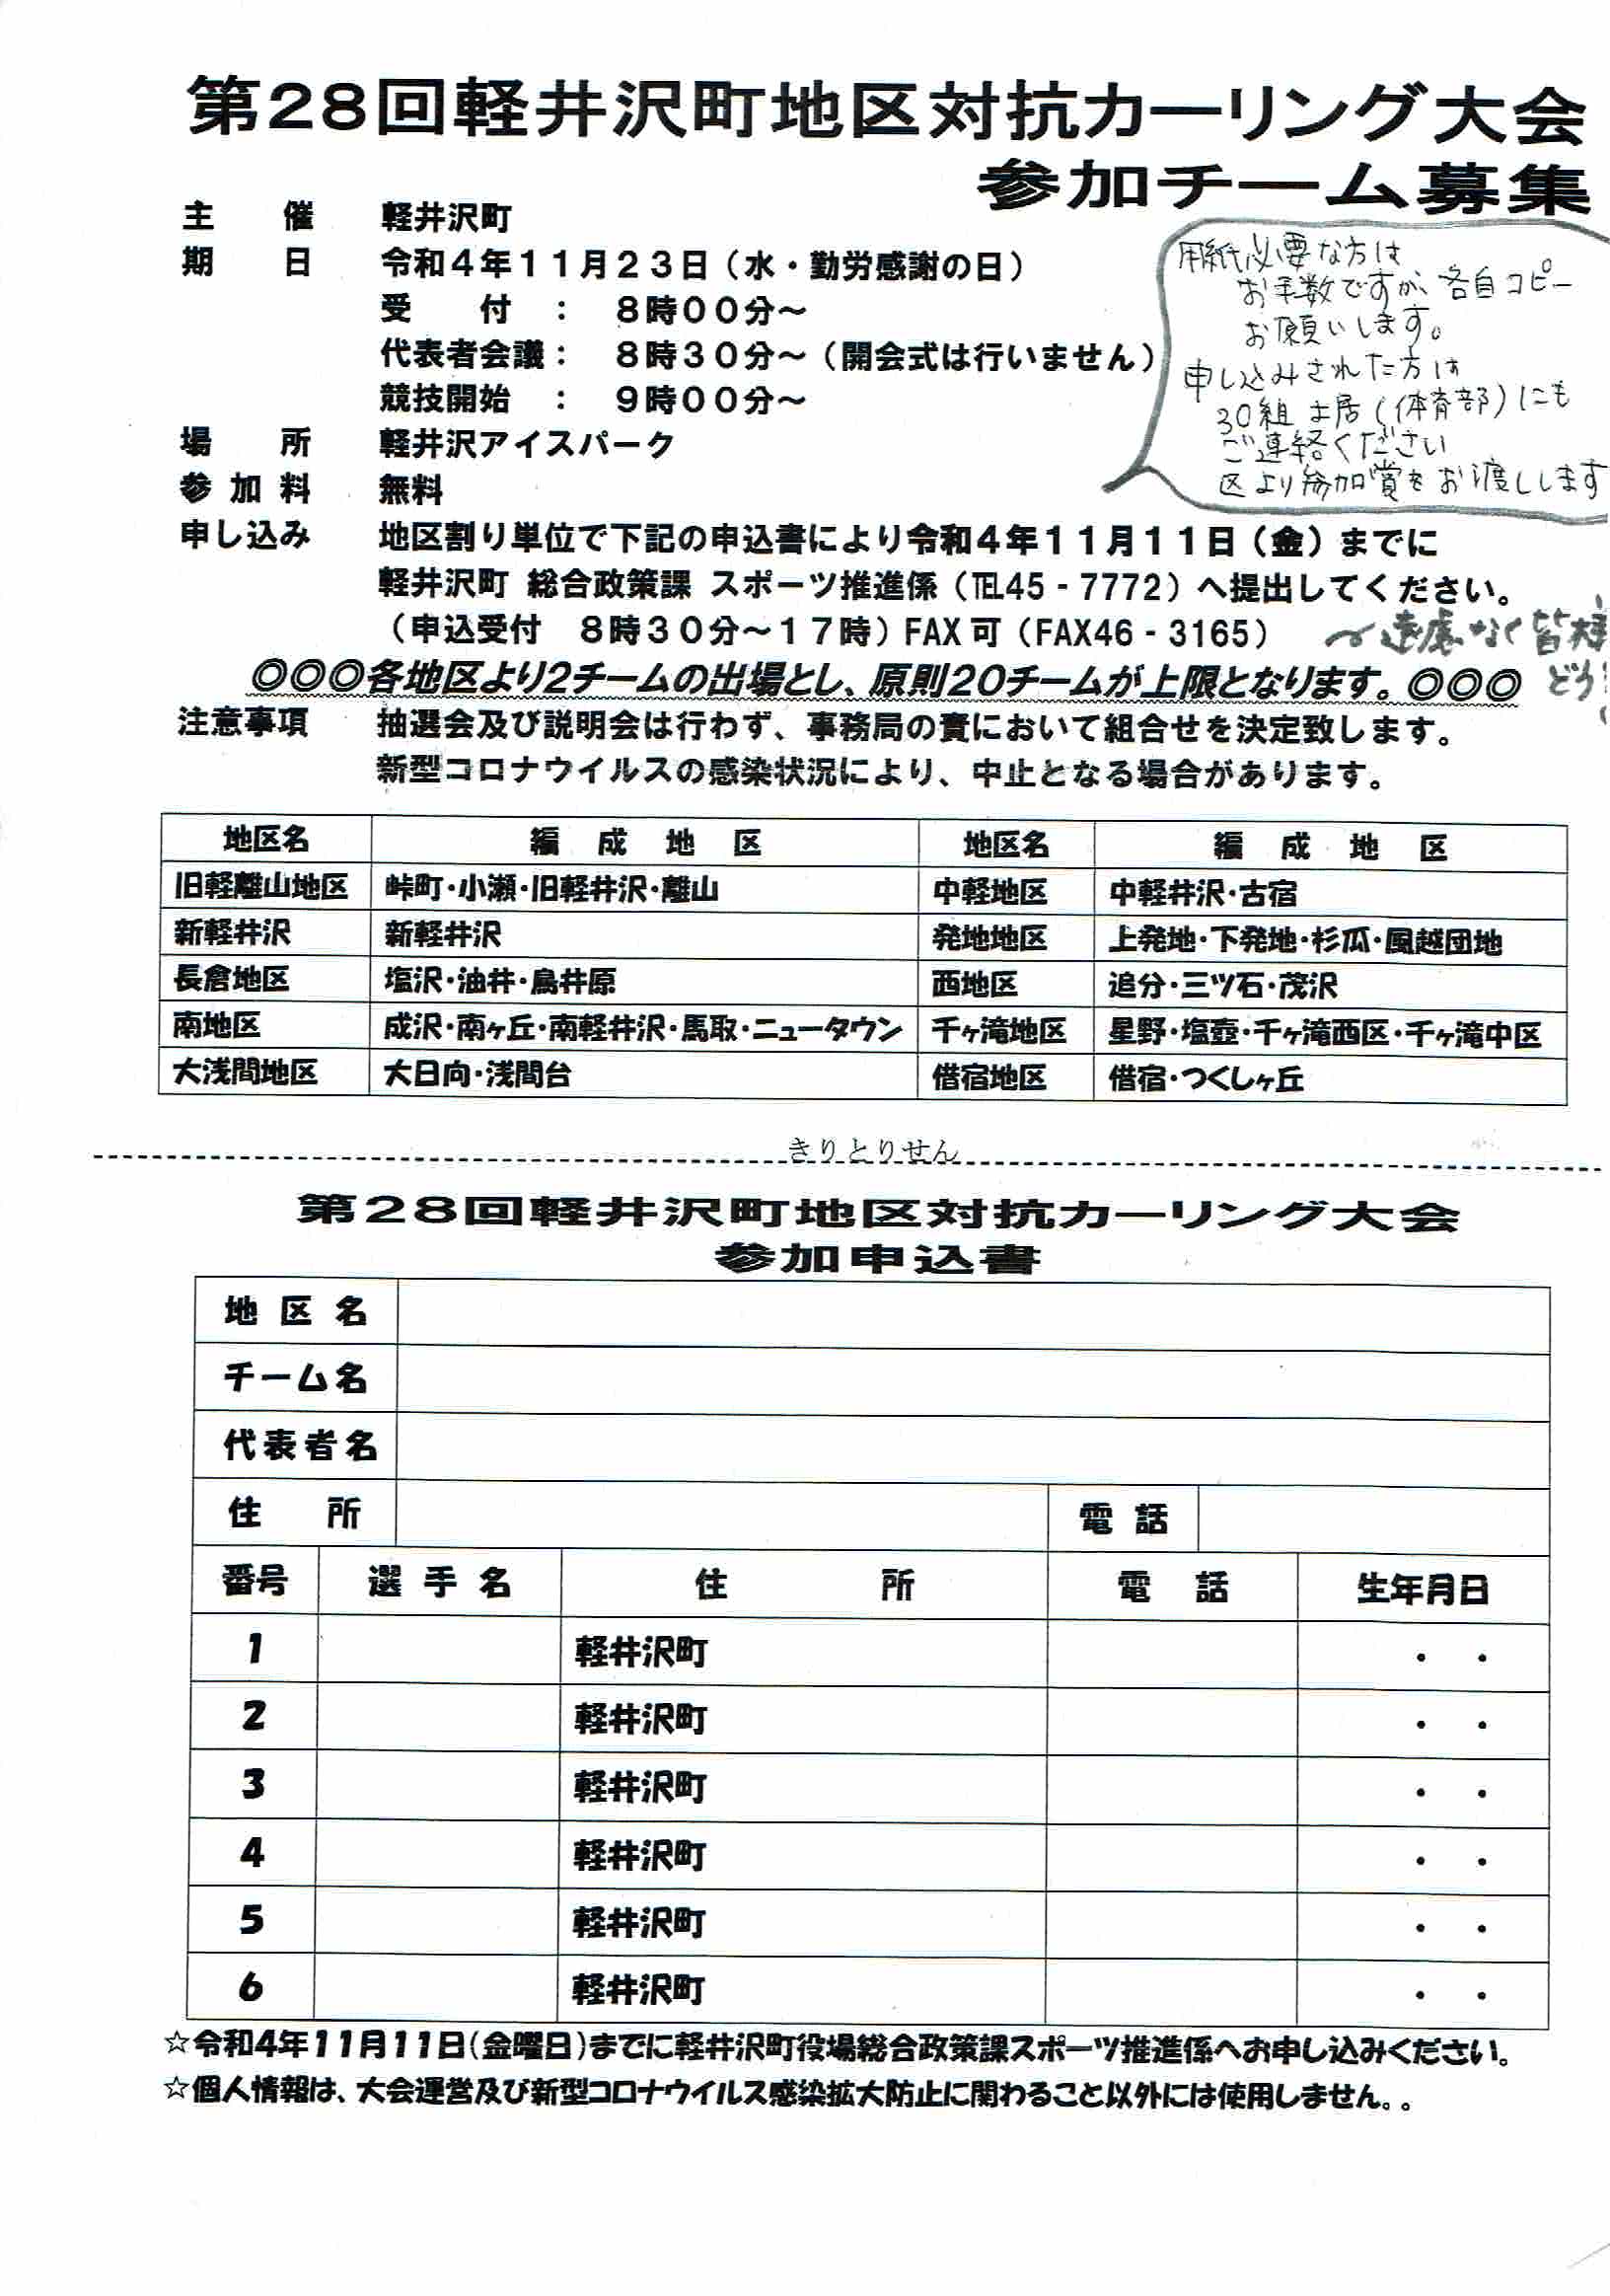 第28回軽井沢町地区対抗カーリング大会
参加チーム募集
主　催　軽井沢町
期　日　令和４年１１月２３日（水・勤労感謝の日）
受　付　：　８時００分～
代表者会議：　８時３０分～（開会式は行いません）
競技開始　：　９時００分～
場　所　軽井沢アイスパーク
参加料　無料
用紙必要な方は
お手数ですが、各自コピー
お願いします。
申し込みされた方は
30組 土居（体育部）にも
ご連絡ください
区より参加賞をお渡しします
申し込み　地区割り単位で下記の申込書により令和４年１１月１１日（金）までに
軽井沢町 総合政策課 スポーツ推進係（℡45‐7772）へ提出してください。
（申込受付　８時３０分～１７時）FAX可（FAX46‐3165）
～遠慮なく皆様
どう
○○○各地区より2チームの出場とし、原則20チームが上限となります。○○○
注意事項　抽選会及び説明会は行わず、事務局の責において組合せを決定致します。
新型コロナウイルスの感染状況により、中止となる場合があります。
地区名　編成地区　地区名　編成地区
旧軽離山地区　峠町・小瀬・旧軽井沢・離山　中軽地区　中軽井沢・古宿
新軽井沢　新軽井沢　発地地区　上発地・下発地・杉瓜・風越団地
長倉地区　塩沢・油井・鳥井原　西地区　追分・三ツ石・茂沢
南地区　成沢・南ヶ丘・南軽井沢・馬取・ニュータウン　千ヶ滝地区　星野・塩壺・千ヶ滝西区・千ヶ滝中区
大浅間地区　大日向・浅間台　借宿地区　借宿・つくしヶ丘
きりとりせん
第28回軽井沢町地区対抗カーリング大会
参加申込書
地区名
チーム名
代表者名
住　所　電話
番号　選手名　住　所　電　話　生年月日
1　軽井沢町　・　・
2　軽井沢町　・　・
3　軽井沢町　・　・
4　軽井沢町　・　・
5　軽井沢町　・　・
6　軽井沢町　・　・
☆令和4年11月11日（金曜日）までに軽井沢町役場総合政策課スポーツ推進係へお申し込みください。
☆個人情報は、大会運営及び新型コロナウイルス感染拡大防止に関わること以外には使用しません。。